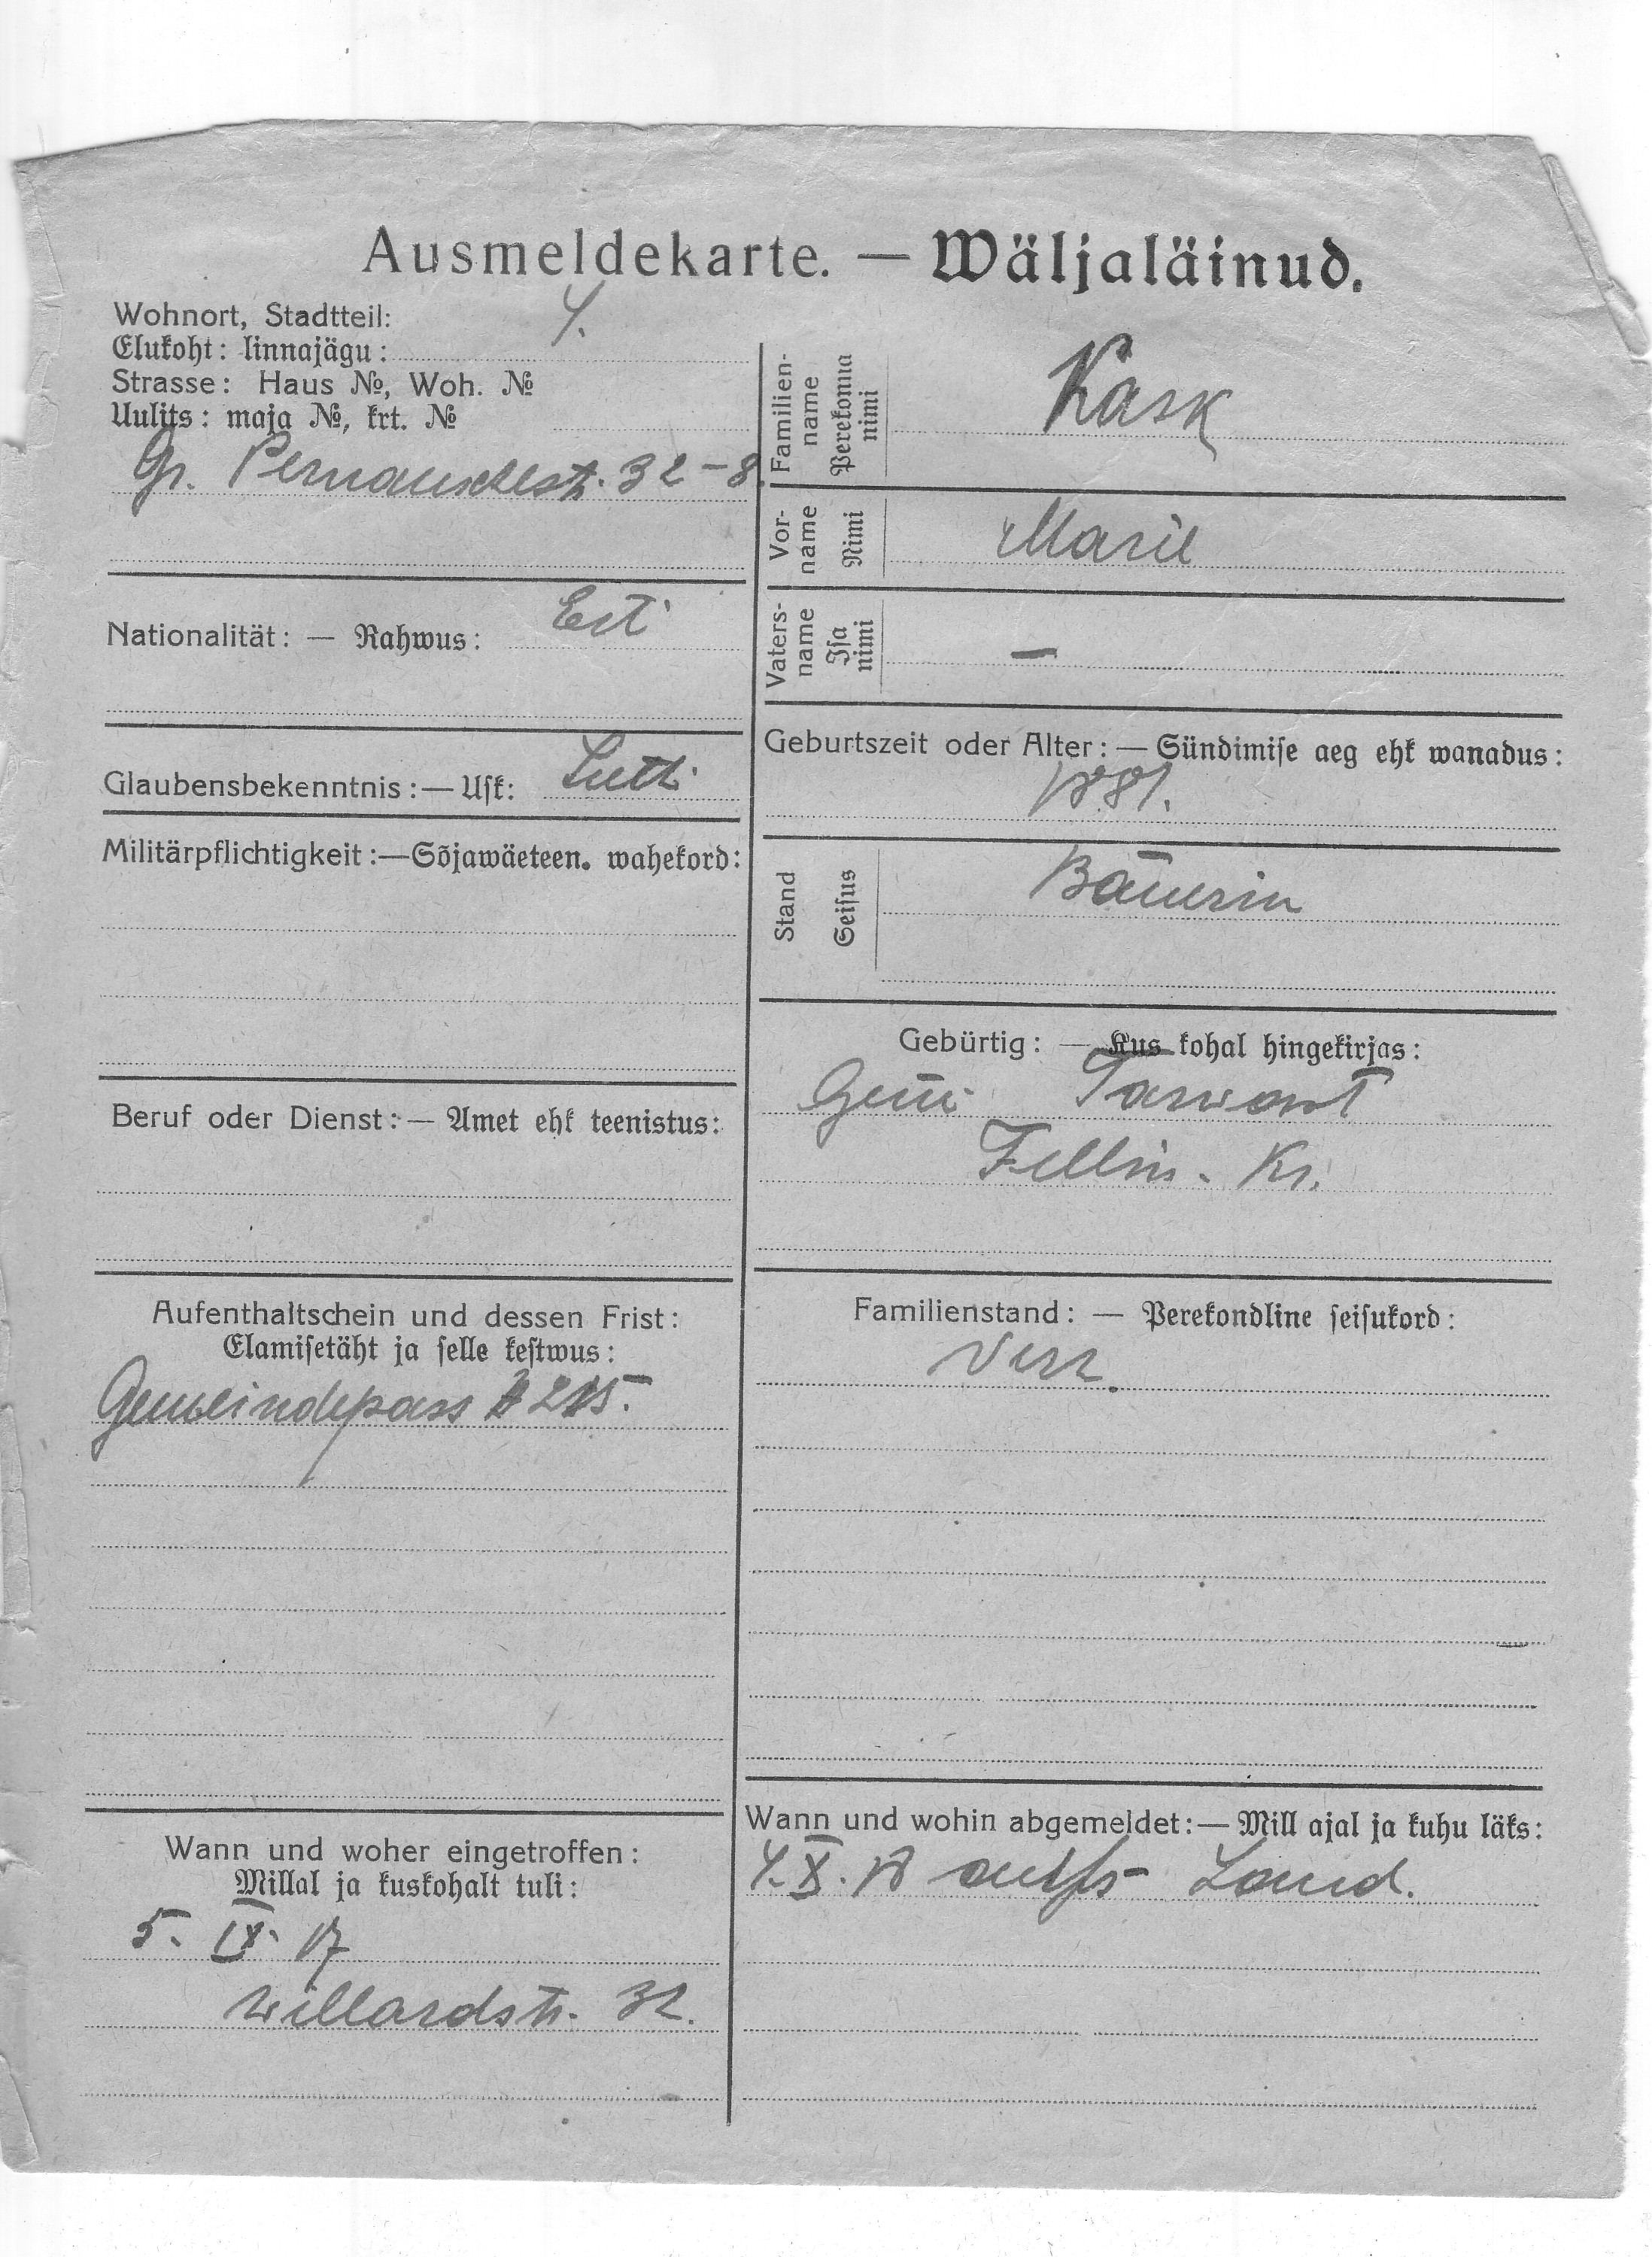 Ausmeldekarte. — Wäljaläinud.
Wohnort, Stadtteil:
Elukoht: linnajägu: 4.
Strasse: Haus №, Woh. №
Uulits: maja №, krt. №
Gr. Pernauschestr. 32-8.
Nationalität: — Rahwus: Esti
Glaubensbekenntnis: — Usk: Luth.
Militärpflichtigkeit:—Sõjawäeteen. wahekord:
Beruf oder Dienst: — Amet ehk teenistus:
Aufenthaltschein und dessen Frist:
Elamisetäht ja selle kestwus:
Gemeindepass 215.
Wann und woher eingetroffen:
Millal ja kuskohalt tuli:
5. IX. 17
Willardstr. 32.
Familien-
name
Perekonna
nimi
Kask
Vor-
name
Nimi
Marie
Vaters-
name
Isa
nimi
—
Geburtszeit oder Alter: — Sündimise aeg ehk wanadus:
1881.
Stand
Seisus
Bäuerin
Gebürtig: — Kus kohal hingekirjas:
Gem. Tarwast
Fellin. Kr.
Familienstand: — Perekondline seisukord:
Verh.
Wann und wohin abgemeldet:— Mill ajal ja kuhu läks:
4. X. 18 aufs Land.